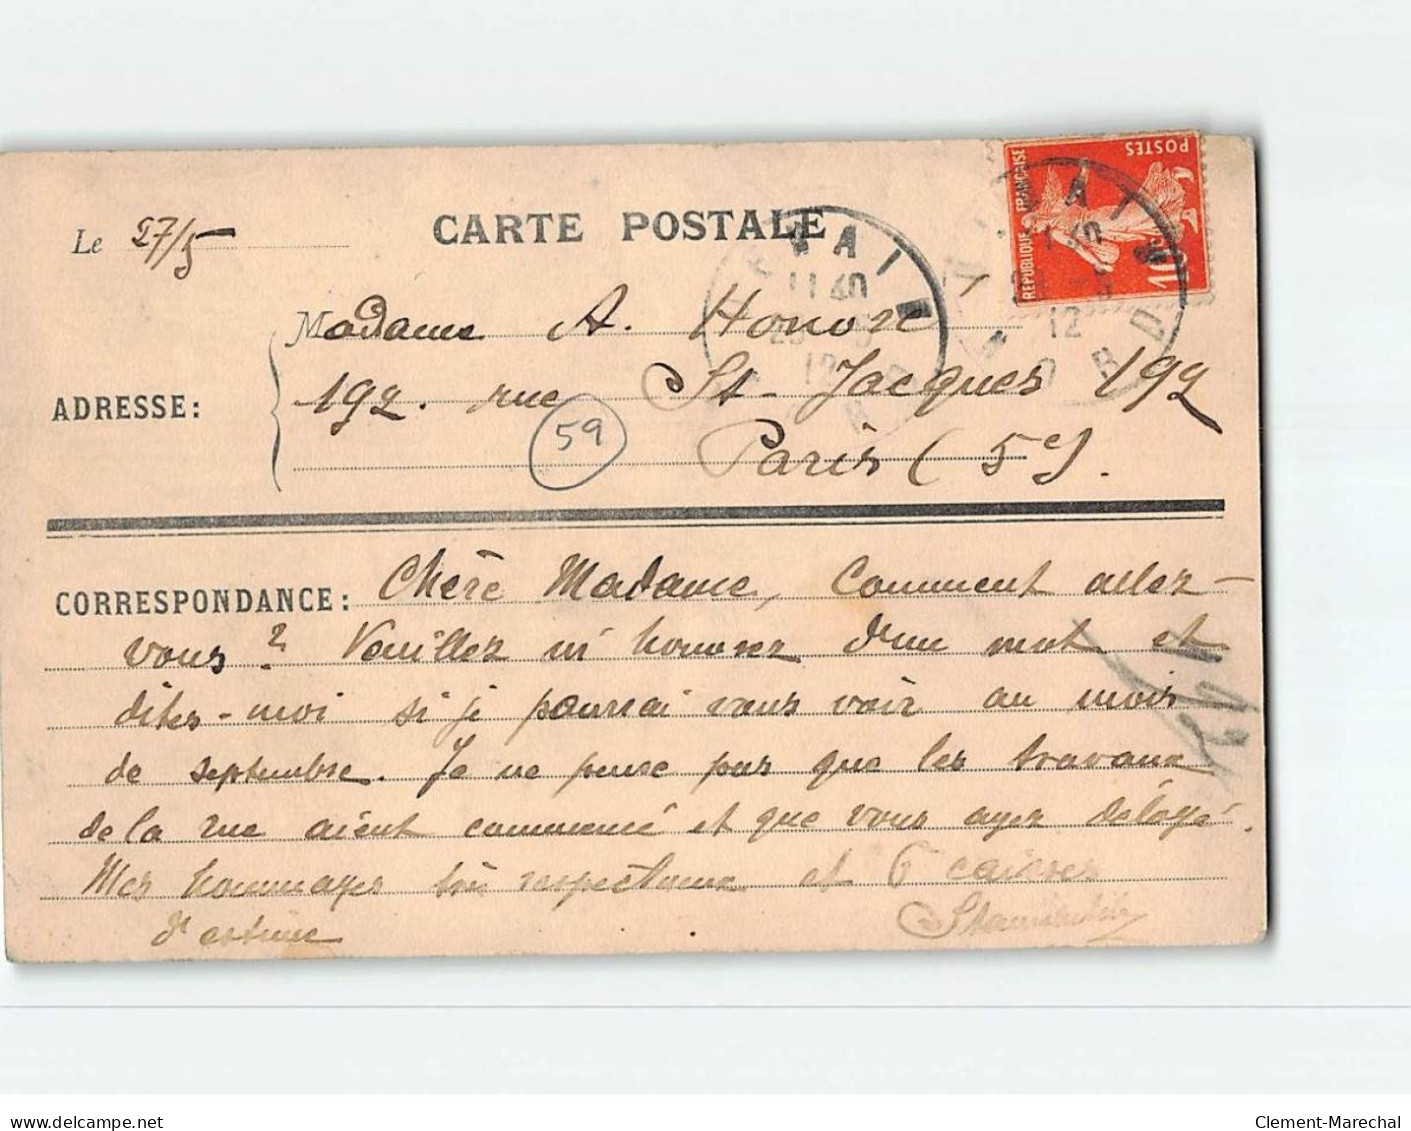 Le 27/5
CARTE POSTALE
RÉPUBLIQUE FRANÇAISE
POSTES
10c
11 40
12
11 40
12
NORD
Madame A. Honoré
ADRESSE:
192. rue St-Jacques 192
59
Paris (5e).
CORRESPONDANCE: Chère Madame, Comment allez-
vous? Veuillez m'honorer d'un mot et
dites-moi si je pourrai vous voir au mois
de septembre. Je ne pense pas que les travaux
de la rue aient commencé et que vous ayez délogé.
Mes hommages très respectueux et 6 caisses
d'estime
www.delcampe.net
Clement-Marechal